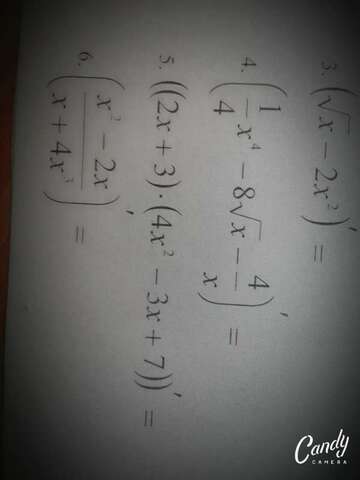 3. (√x − 2x²)′ =
4. (1/4 x⁴ − 8√x − 4/x)′ =
5. ((2x + 3)·(4x² − 3x + 7))′ =
6. (x² − 2x / x + 4x³)′ =
Candy
CAMERA